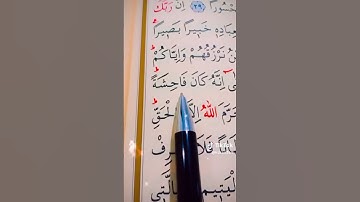 مَحْسُورًا ﴿٢٩﴾ اِنَّ رَبَّكَ
بِعِبَادِه۪ خَب۪يرًا بَص۪يرًا
نَحْنُ نَرْزُقُهُمْ وَاِيَّاكُمْ
اِنَّهُ كَانَ فَاحِشَةً
حَرَّمَ اللّٰهُ اِلَّا بِالْحَقِّ
فَلَا يُسْرِفْ
الْيَت۪يمِ اِلَّا بِالَّت۪ي